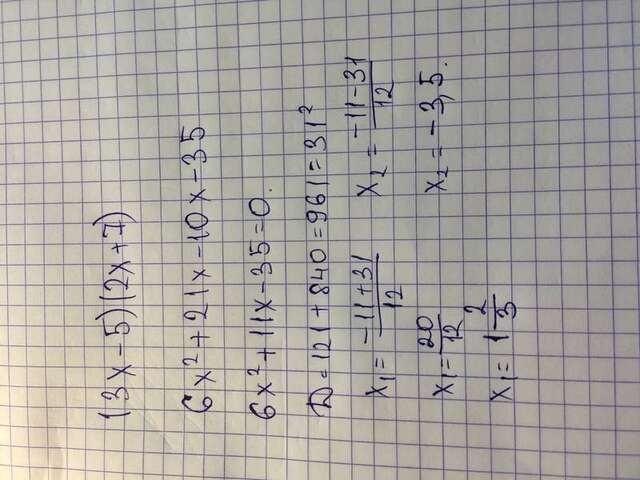 (3x-5)(2x+7)
6x²+21x-10x-35
6x²+11x-35=0.
D=121+840=961=31²
x₁=(-11+31)/12 x₂=(-11-31)/12
x₁=20/12 x₂=-3,5.
x₁=1 2/3